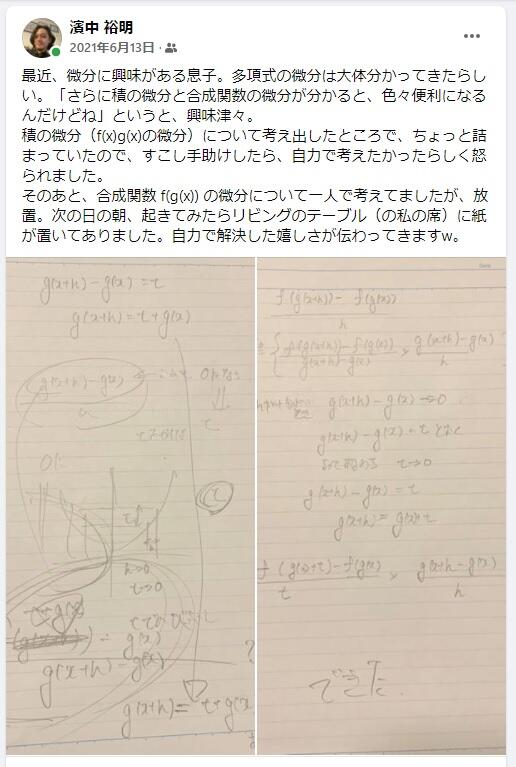 濱中 裕明
2021年6月13日 ·
最近、微分に興味がある息子。多項式の微分は大体分かってきたらし
い。「さらに積の微分と合成関数の微分が分かると、色々便利になる
んだけどね」というと、興味津々。
積の微分（f(x)g(x)の微分）について考え出したところで、ちょっと詰
まっていたので、すこし手助けしたら、自力で考えたかったらしく怒
られました。
そのあと、合成関数 f(g(x)) の微分について一人で考えてましたが、放
置。次の日の朝、起きてみたらリビングのテーブル（の私の席）に紙
が置いてありました。自力で解決した嬉しさが伝わってきますw。
g(x+h)-g(x)=t
g(x+h)=t+g(x)
g(x+h)-g(x)
t
h→0
t→0
t+g(x)
g(x)
g(x+h)-g(x)
g(x+h)= t+g(x
f(g(x+h))- f(g(x))
h
f(g(x+h))-f(g(x))
g(x+h)-g(x)
× g(x+h)-g(x)
h
g(x+h)-g(x)→0
g(x+h)-g(x)=t
t→0
g(x+h)-g(x)=t
g(x+h)=g(x)+t
f(g(x)+t)-f(g(x)
t
× g(x+h-g(x)
h
できた.